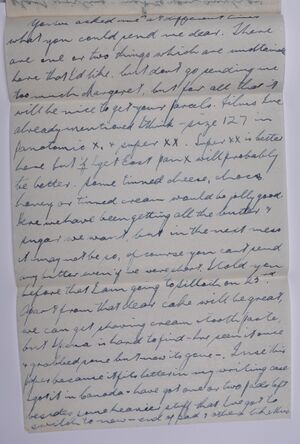 You've asked me at different times
what you could send me dear. There
are one or two things which are unobtainable
here that I'd like. but don't go sending me
too much Margaret, but for all that it
will be nice to get your parcels. Films I've
already mentioned I think - size 127 in
panatomic X, & super XX. Super XX is better
here but if I get East pan X will probably
be better. Some tinned cheese, choc,
honey or tinned cream would be jolly good
Here we have been getting all the butter &
sugar we want, but in the next mess
it may not be so, of course you can't send
my butter even if we were short. I told you
before that I am going to on 23rd
Apart from that dear cake will be great,
we can get shaving cream & tooth paste,
but is hard to find - I've seen it once
& grabbed some but now its gone -. I use this
paper because it fits better in my writing case
I got it in Canada & have got one or two pads left
besides some heavier stuff that I've got to
switch to now - end of pad &